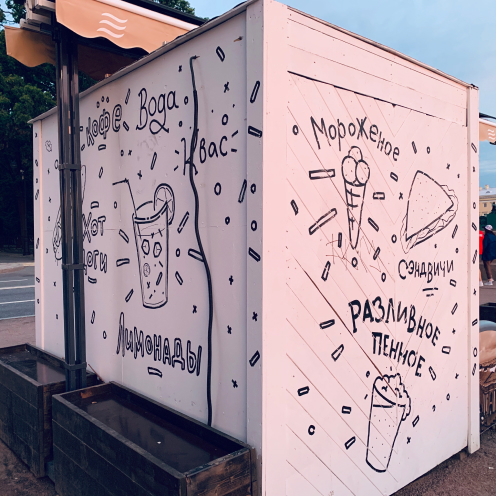 Кофе
Вода
Квас
Хот
Доги
Лимонады
Мороженое
Сэндвичи
Разливное
Пенное